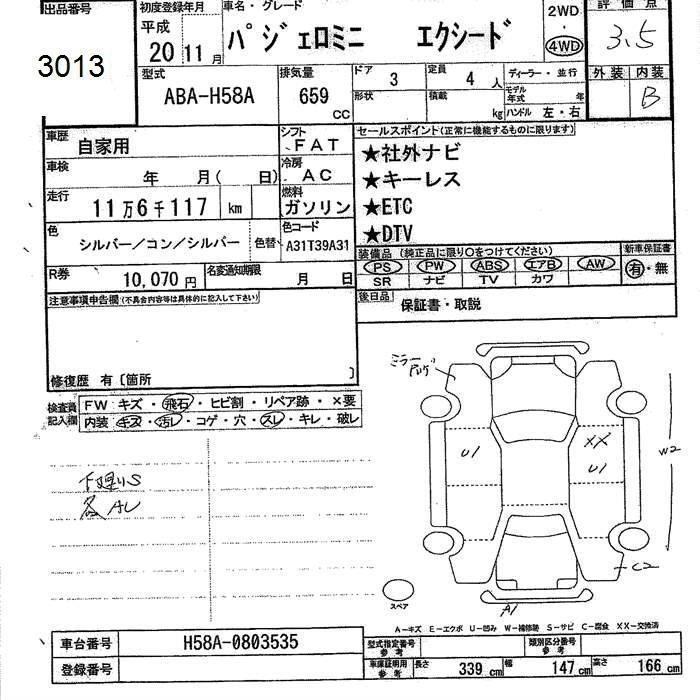 出品番号
3013
初度登録年月
平成
20年11月
車名・グレード
パジェロミニ エクシード
2WD
・
4WD
評価点
3.5
型式
ABA-H58A
排気量
659 CC
ドア 3
定員 4 人
形状
積載 kg
ディーラー・並行
モデル年式 年
ハンドル 左・右
外装 内装
B
車歴 自家用
シフト FAT
車検 年 月( 日)
冷房 AC
走行 11万6千117 km
燃料 ガソリン
色 シルバー/コン/シルバー 色替
色コード A31T39A31
R券 10,070円
名変通知期限 月 日
セールスポイント(正常に機能するものに限ります)
★社外ナビ
★キーレス
★ETC
★DTV
装備品 (純正品に限り○をつけてください)
新車保証書
PS PW ABS エアB AW
有・無
SR ナビ TV カワ
後日品 保証書・取説
注意事項申告欄(不具合内容等は具体的に記入して下さい)
修復歴 有〔箇所 〕
検査員記入欄
FW キズ・飛石・ヒビ割・リペア跡・×要
内装 キズ・汚レ・コゲ・穴・スレ・キレ・破レ
下廻りS
AU
ミラー
U1
XX
U1
W2
C2
A1
スペア
A-キズ E-エクボ U-凹み W-補修跡 S-サビ C-腐食 XX-交換済
車台番号 H58A-0803535
登録番号
型式指定番号 参考
類別区分番号 参考
車庫証明用 参考
長さ 339 cm 幅 147 cm 高さ 166 cm